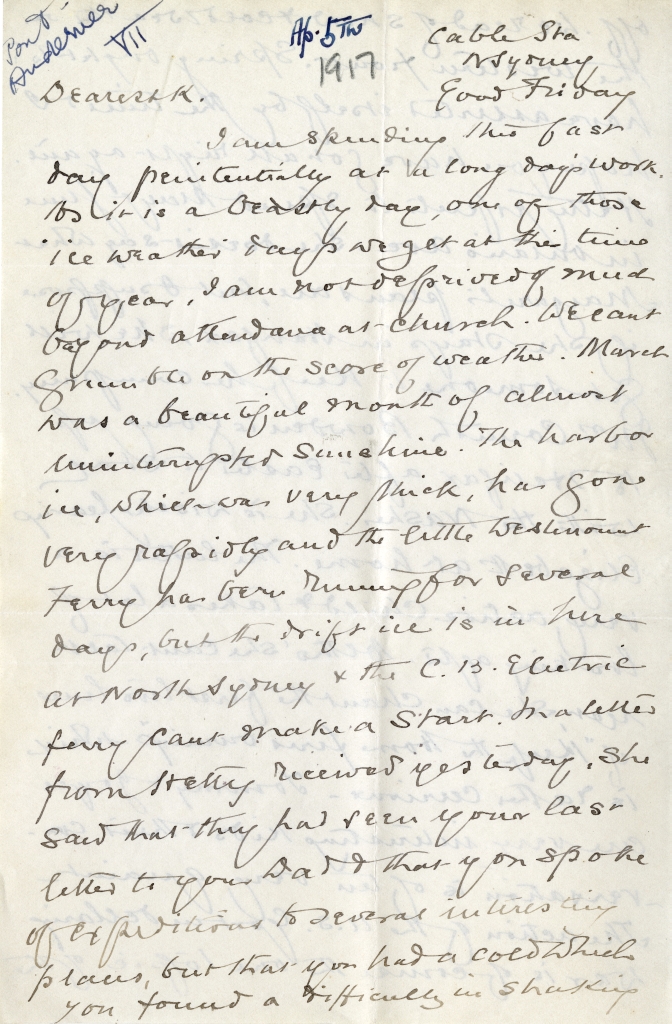 Pont
Audemer
VII
Ap. 5th
1917
Cable Sta
N Sydney
Good Friday
Dearest K.
I am spending this fast
day penitentially at a long day's work.
As it is a beastly day, one of those
ice weather days we get at the time
of year, I am not deprived of much
beyond attendance at church. We cant
grumble on the score of weather. March
was a beautiful month of almost
uninterrupted sunshine. The harbor
ice, which was very thick, has gone
very rapidly and the little Westmount
Ferry has been running for several
days, but the drift ice is in here
at North Sydney & the C. B. Electric
ferry cant make a start. In a letter
from Hetty received yesterday, she
said that they had seen your last
letter to your Dad & that you spoke
of expeditions to several interesting
places, but that you had a cold which
you found a difficulty in shaking